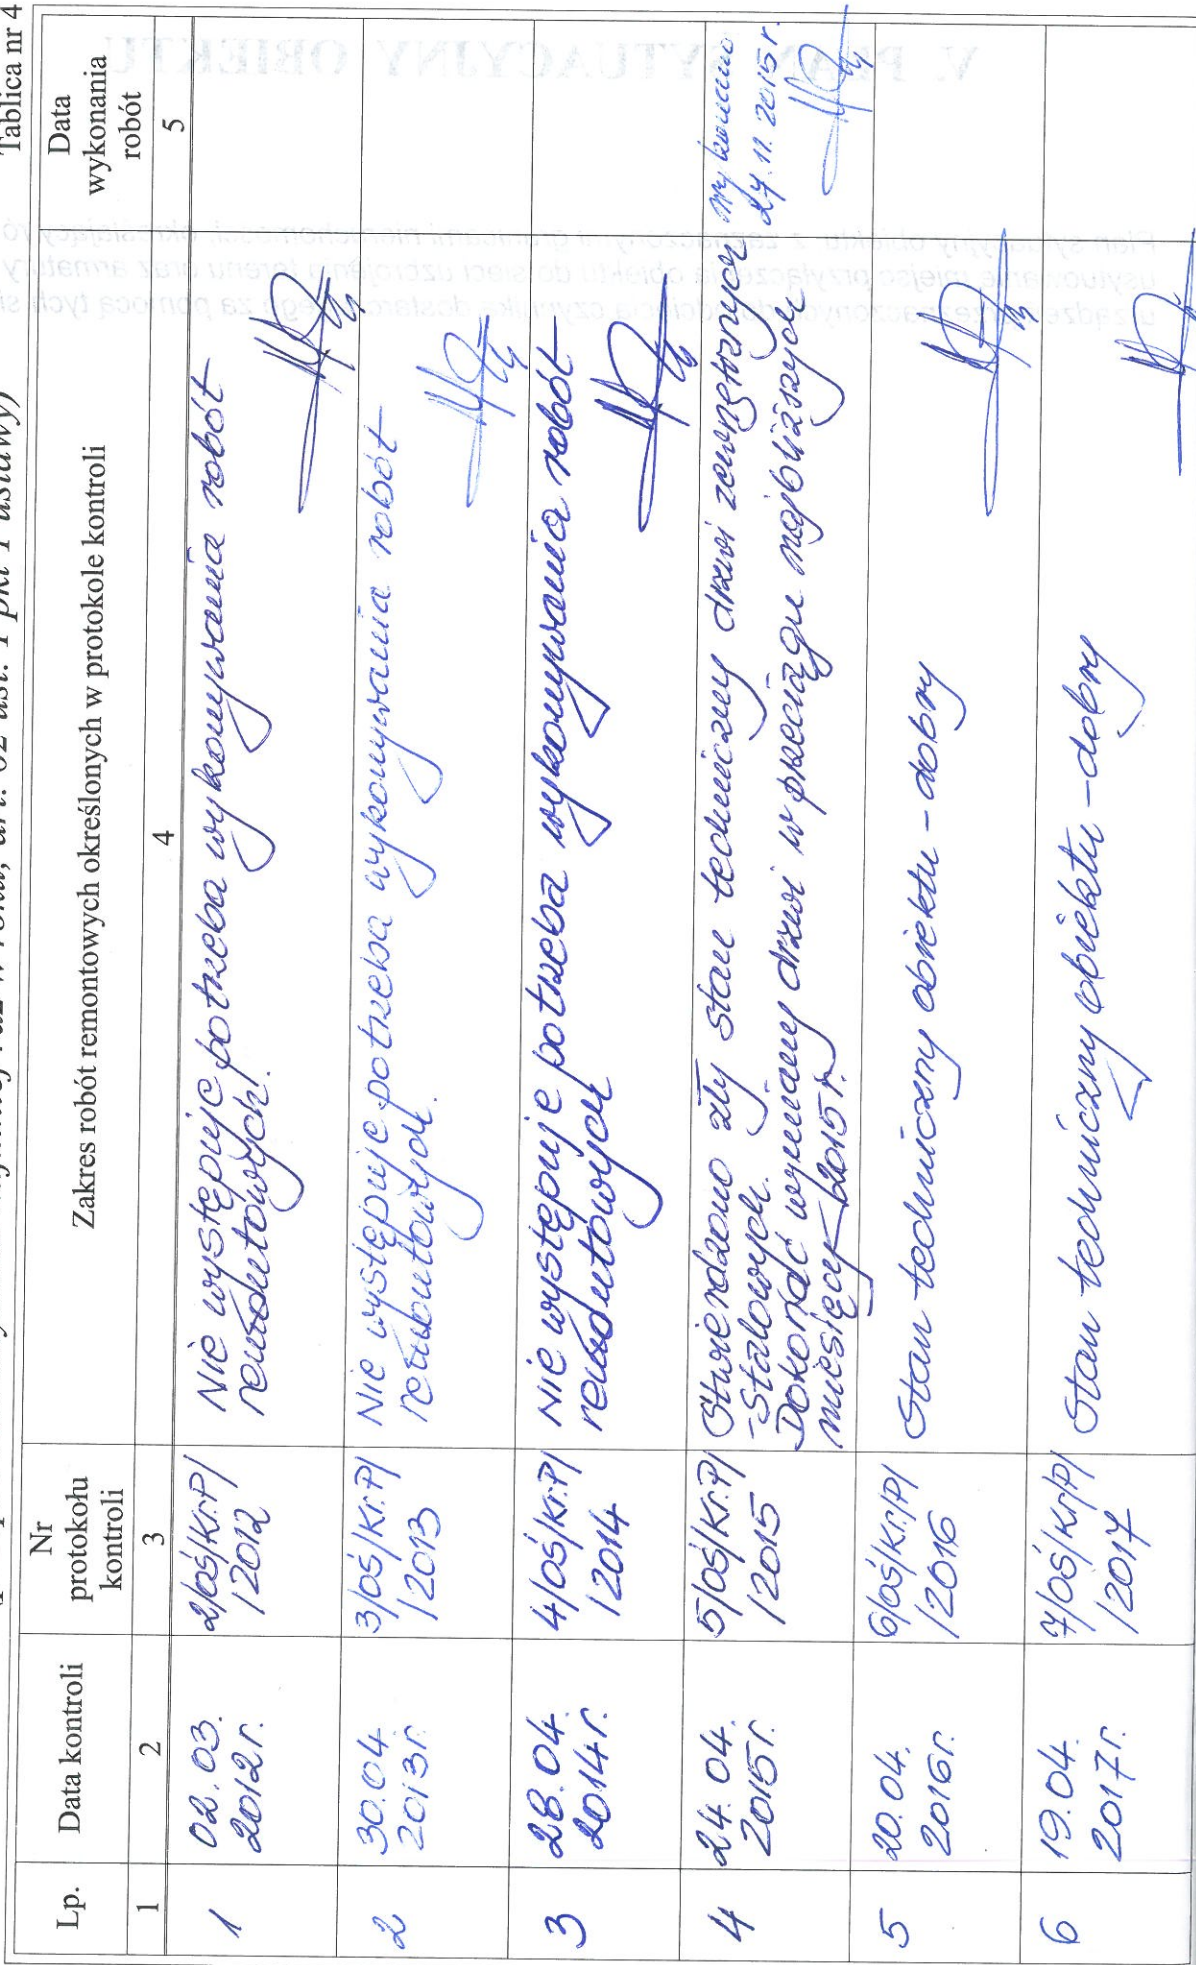 Tablica nr 4
raz w roku, art. 62 ust. 1 pkt 1 ustawy)
Lp.
Data kontroli
Nr
protokołu
kontroli
Zakres robót remontowych określonych w protokole kontroli
Data
wykonania
robót
1
2
3
4
5
1
02.03.
2012r.
2/OŚ/Kr.P/
/2012
Nie występuje potrzeba wykonywania robót
remontowych.
2
30.04
2013r.
3/OŚ/Kr.P/
/2013
Nie występuje potrzeba wykonywania robót
remontowych.
3
28.04.
2014r.
4/OŚ/Kr.P/
/2014
Nie występuje potrzeba wykonywania robót
remontowych
4
24.04.
2015r.
5/OŚ/Kr.P/
/2015
Stwierdzono zły stan techniczny drzwi zewnętrznych
-stalowych.
Dokonać wymiany drzwi w przeciągu najbliższych
miesięcy 2015r.
wykonano
24.11.2015r.
5
20.04.
2016r.
6/OŚ/Kr/P/
/2016
Stan techniczny obiektu - dobry
6
19.04.
2017r.
7/OŚ/Kr/P/
/2017
Stan techniczny obiektu - dobry
V. PLAN SYTUACYJNY OBIEKTU